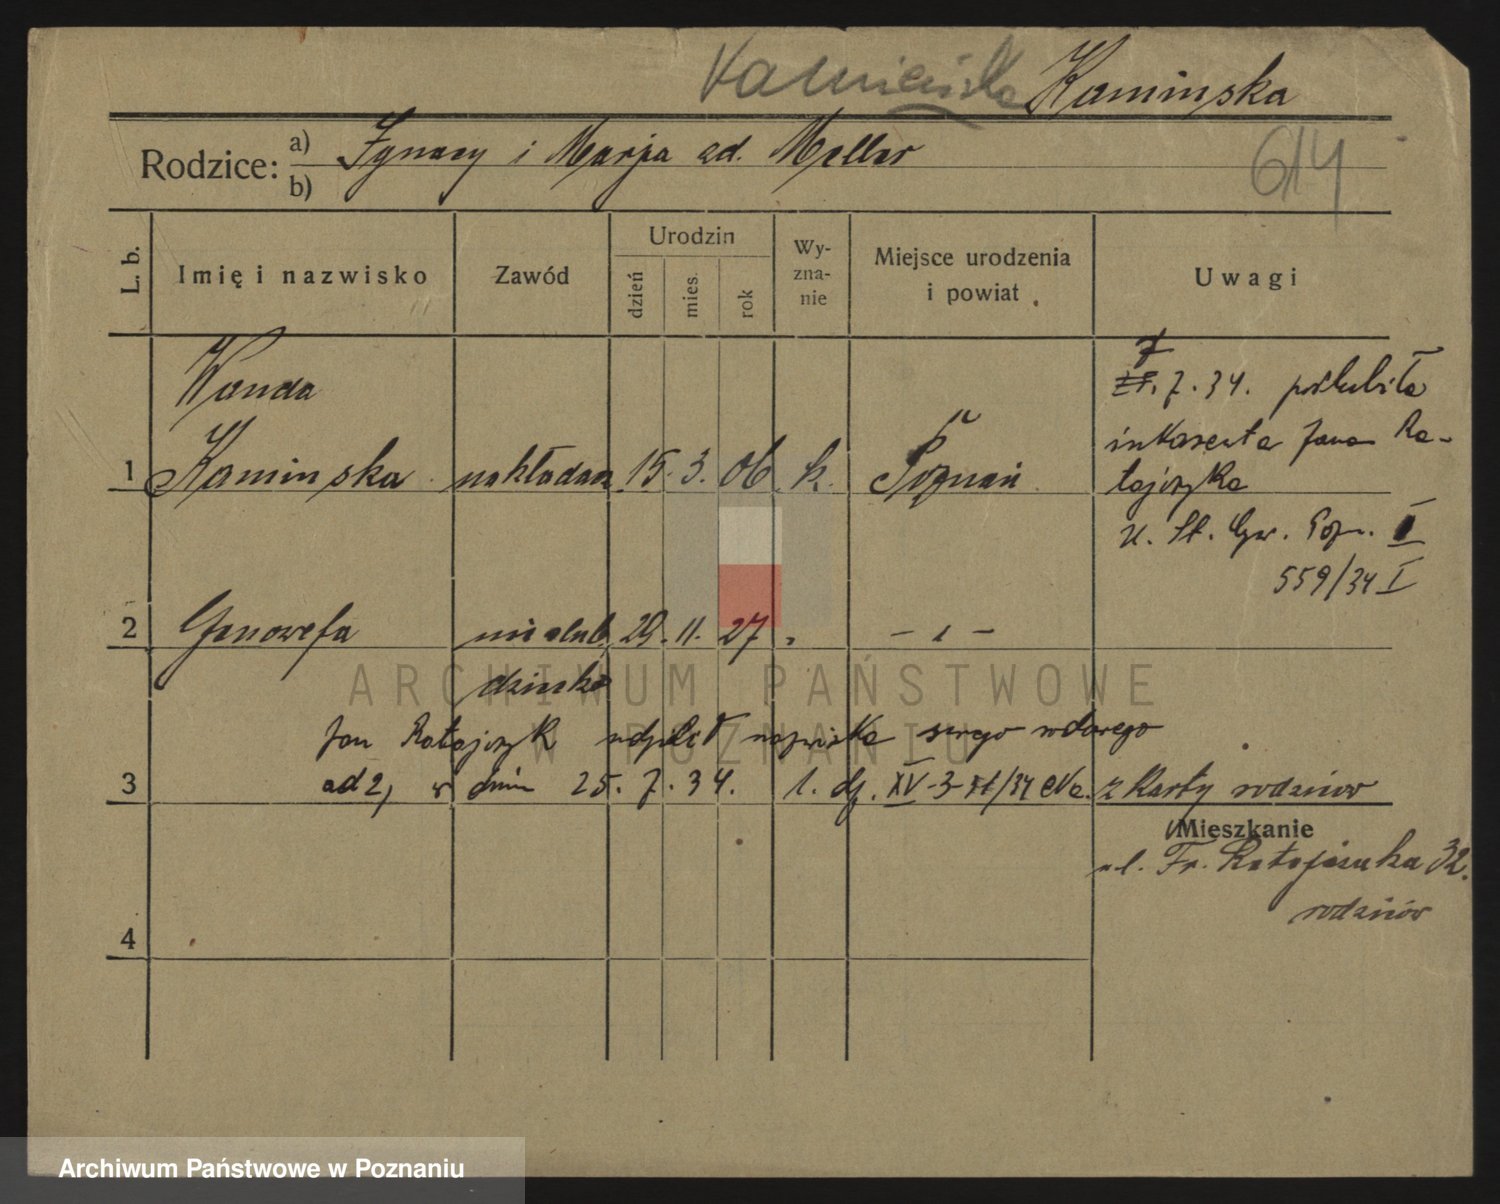 Kamieńska Kaminska
614
Rodzice: a) Ignacy i Marja ad. Meller
b)
L. b.
Imię i nazwisko
Zawód
Urodzin
dzień
mies.
rok
Wy-
zna-
nie
Miejsce urodzenia
i powiat
Uwagi
Wanda
1 Kaminska nakładacz 15. 3. 06 k. Poznań
7
7. 34. poślubiła
inkasenta Jana Ra-
tajczyka
U. St. Cyw. Pozn. I
559/34 I
2 Genowefa nieślub. 29. 11. 27 " - " -
dziecko
Jan Ratajczyk udzielił nazwiska swego
3 ad 2, w dniu 25. 7. 34. l. dz. XV-3 /34 z karty rodziców
Mieszkanie
ul. Fr. Ratajczaka 32.
rodziców
4
ARCHIWUM PAŃSTWOWE
W POZNANIU
Archiwum Państwowe w Poznaniu